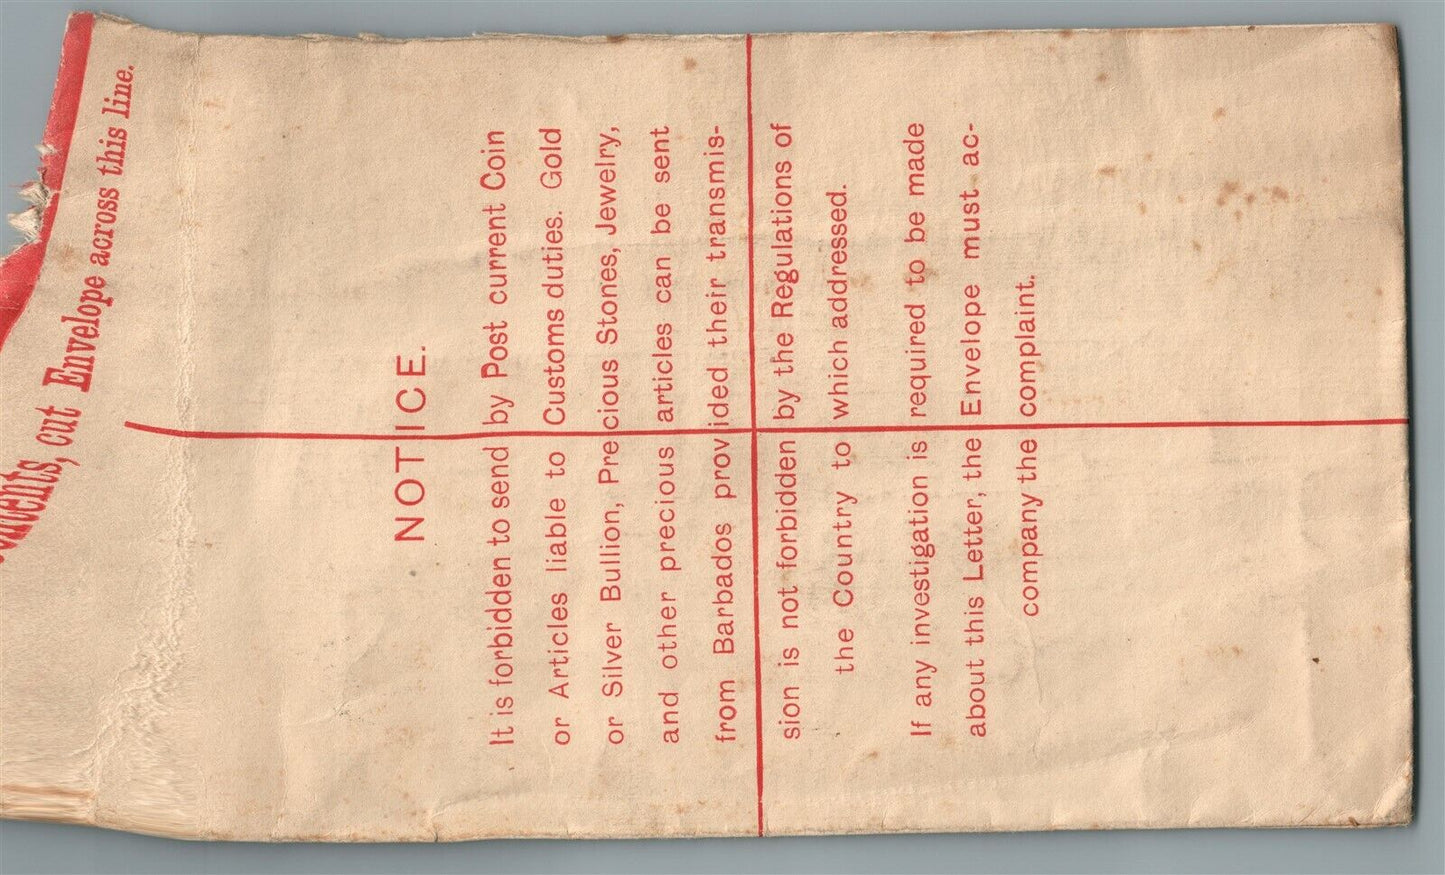 cut Envelope across this line.
NOTICE.
It is forbidden to send by Post current Coin
or Articles liable to Customs duties. Gold
or Silver Bullion, Precious Stones, Jewelry,
and other precious articles can be sent
from Barbados provided their transmis-
sion is not forbidden by the Regulations of
the Country to which addressed.
If any investigation is required to be made
about this Letter, the Envelope must ac-
company the complaint.